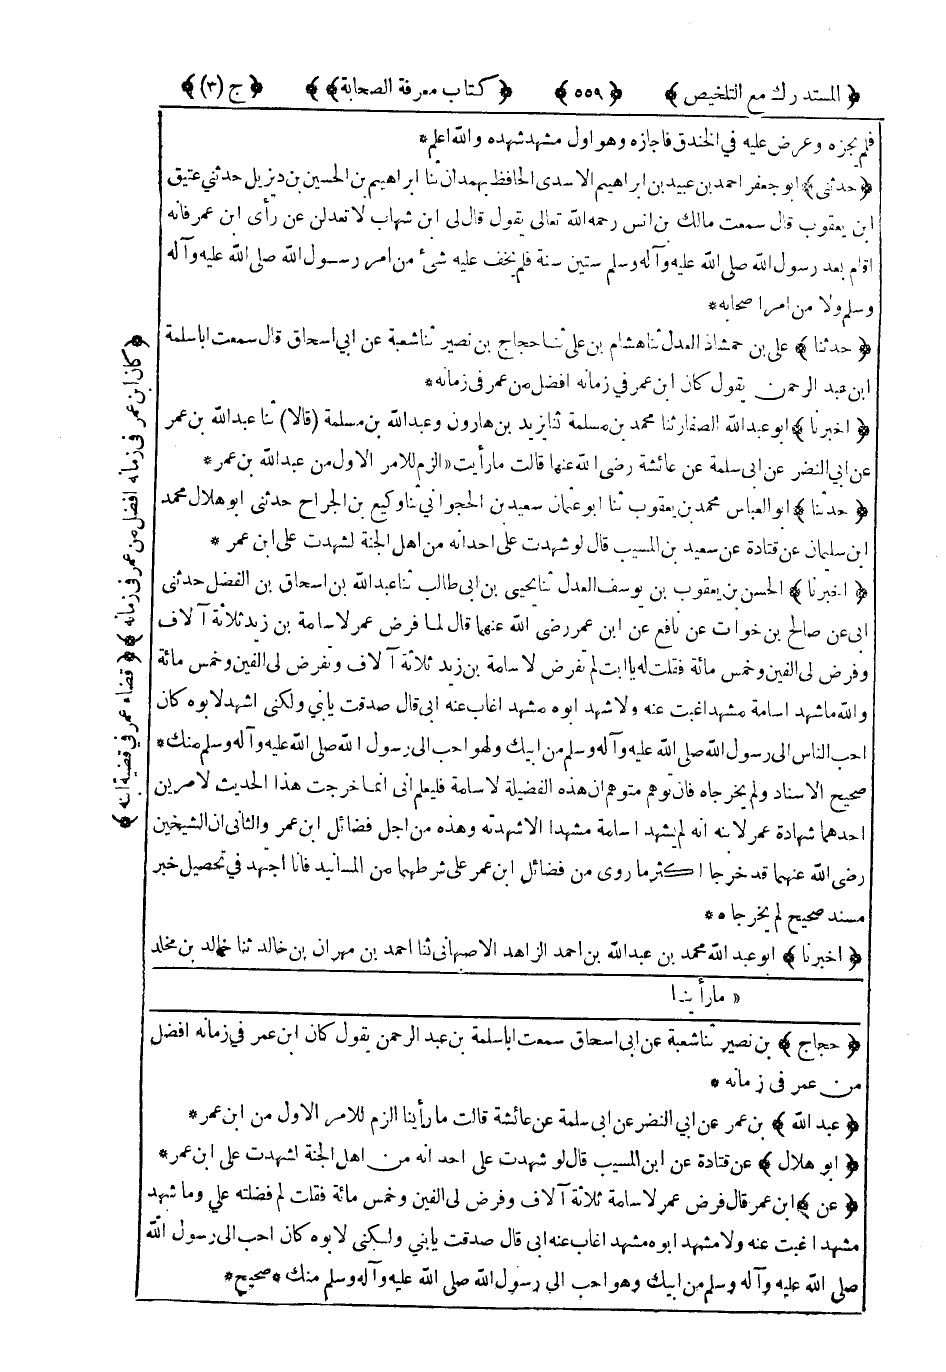 ﴿ المستدرك مع التلخيص ﴾ ﴿ ٥٥٩ ﴾ ﴿ كتاب معرفة الصحابة ﴾ ﴿ ج (٣) ﴾
فلم يجزه وعرض عليه في الخندق فاجازه وهو اول مشهد شهده والله اعلم *
﴿ حدثني ﴾ ابو جعفر احمد بن عبيد بن ابراهيم الاسدى الحافظ بهمدان ثنا ابراهيم بن الحسين بن ديزيل حدثني عتيق
ابن يعقوب قال سمعت مالك بن انس رحمه الله تعالى يقول قال لى ابن شهاب لا تعدلن عن رأى ابن عمر فانه
اقام بعد رسول الله صلى الله عليه وآله وسلم ستين سنة فلم يخف عليه شئ من امر رسول الله صلى الله عليه وآله
وسلم ولا من امر اصحابه *
﴿ حدثنا ﴾ على بن حمشاذ العدل ثنا هشام بن على ثنا حجاج بن نصير ثنا شعبة عن ابي اسحاق قال سمعت ابا سلمة
ابن عبد الرحمن يقول كان ابن عمر في زمانه افضل من عمر فى زمانه *
﴿ اخبرنا ﴾ ابو عبد الله الصفار ثنا محمد بن مسلمة ثنا يزيد بن هارون وعبد الله بن مسلمة (قالا) ثنا عبد الله بن عمر
عن ابي النضر عن ابى سلمة عن عائشة رضى الله عنها قالت ما رأيت « الزم للامر الاول من عبد الله بن عمر *
﴿ حدثنا ﴾ ابو العباس محمد بن يعقوب ثنا ابو عثمان سعيد بن الحجوانى ثنا وكيع بن الجراح حدثنى ابو هلال محمد
ابن سليمان عن قتادة عن سعيد بن المسيب قال لو شهدت على احد انه من اهل الجنة لشهدت على ابن عمر *
﴿ اخبرنا ﴾ الحسن بن يعقوب بن يوسف العدل ثنا يحيى بن ابى طالب ثنا عبد الله بن اسحاق بن الفضل حدثنى
ابى عن صالح بن خوات عن نافع عن ابن عمر رضى الله عنهما قال لما فرض عمر لاسامة بن زيد ثلاثة آلاف
وفرض لى الفين وخمس مائة فقلت له يا ابت لم تفرض لاسامة بن زيد ثلاثة آلاف وتفرض لى الفين وخمس مائة
والله ما شهد اسامة مشهدا غبت عنه ولا شهد ابوه مشهدا غاب عنه ابى قال صدقت يابني ولكنى اشهد لابوه كان
احب الناس الى رسول الله صلى الله عليه وآله وسلم من ابيك ولهو احب الى رسول الله صلى الله عليه وآله وسلم منك *
صحيح الاسناد ولم يخرجاه فان توهم متوهم ان هذه الفضيلة لاسامة فليعلم انى انما خرجت هذا الحديث لامرين
احدهما شهادة عمر لابنه انه لم يشهد اسامة مشهدا الا شهدته وهذه من اجل فضائل ابن عمر والثانى ان الشيخين
رضى الله عنهما قد خرجا اكثر ما روى من فضائل ابن عمر على شرطهما من المسانيد فانا اجتهد فى تحصيل خبر
مسند صحيح لم يخرجاه *
﴿ اخبرنا ﴾ ابو عبد الله محمد بن عبد الله بن احمد الزاهد الاصبهانى ثنا احمد بن مهران بن خالد ثنا خالد بن مخلد
« ما رأينا
﴿ حجاج ﴾ بن نصير ثنا شعبة عن ابى اسحاق سمعت ابا سلمة بن عبد الرحمن يقول كان ابن عمر في زمانه افضل
من عمر فى زمانه *
﴿ عبد الله ﴾ بن عمر عن ابي النضر عن ابى سلمة عن عائشة قالت ما رأينا الزم للامر الاول من ابن عمر *
﴿ ابو هلال ﴾ عن قتادة عن ابن المسيب قال لو شهدت على احد انه من اهل الجنة لشهدت على ابن عمر *
﴿ عن ﴾ ابن عمر قال فرض عمر لاسامة ثلاثة آلاف وفرض لى الفين وخمس مائة فقلت لم فضلته علي وما شهد
مشهدا غبت عنه ولا مشهد ابوه مشهد اغاب عنه ابى قال صدقت يابني ولكنى لابوه كان احب الى رسول الله
صلى الله عليه وآله وسلم من ابيك وهو احب الى رسول الله صلى الله عليه وآله وسلم منك * صحيح *
﴿ كان ابن عمر فى زمانه افضل من عمر فى زمانه ﴾ ﴿ قضاء عمر في قضية ابنه ﴾